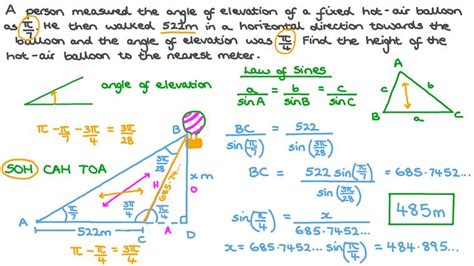 A person measured the angle of elevation of a fixed hot-air balloon
as π/7. He then walked 522m in a horizontal direction towards the
balloon and the angle of elevation was π/4. Find the height of the
hot-air balloon to the nearest meter.
angle of elevation
π - π/7 - 3π/4 = 3π/28
SOH CAH TOA
B
3π/28
H
685.74...
x m
O
π/7
3π/4
π/4
A
522m
C
A
D
π - π/4 = 3π/4
Law of Sines
a/sinA = b/sinB = c/sinC
A
c
b
B
a
C
BC/sin(π/7) = 522/sin(3π/28)
BC = 522sin(π/7)/sin(3π/28) = 685.7452...
sin(π/4) = x/685.7452...
x = 685.7452...sin(π/4) = 484.895...
485m